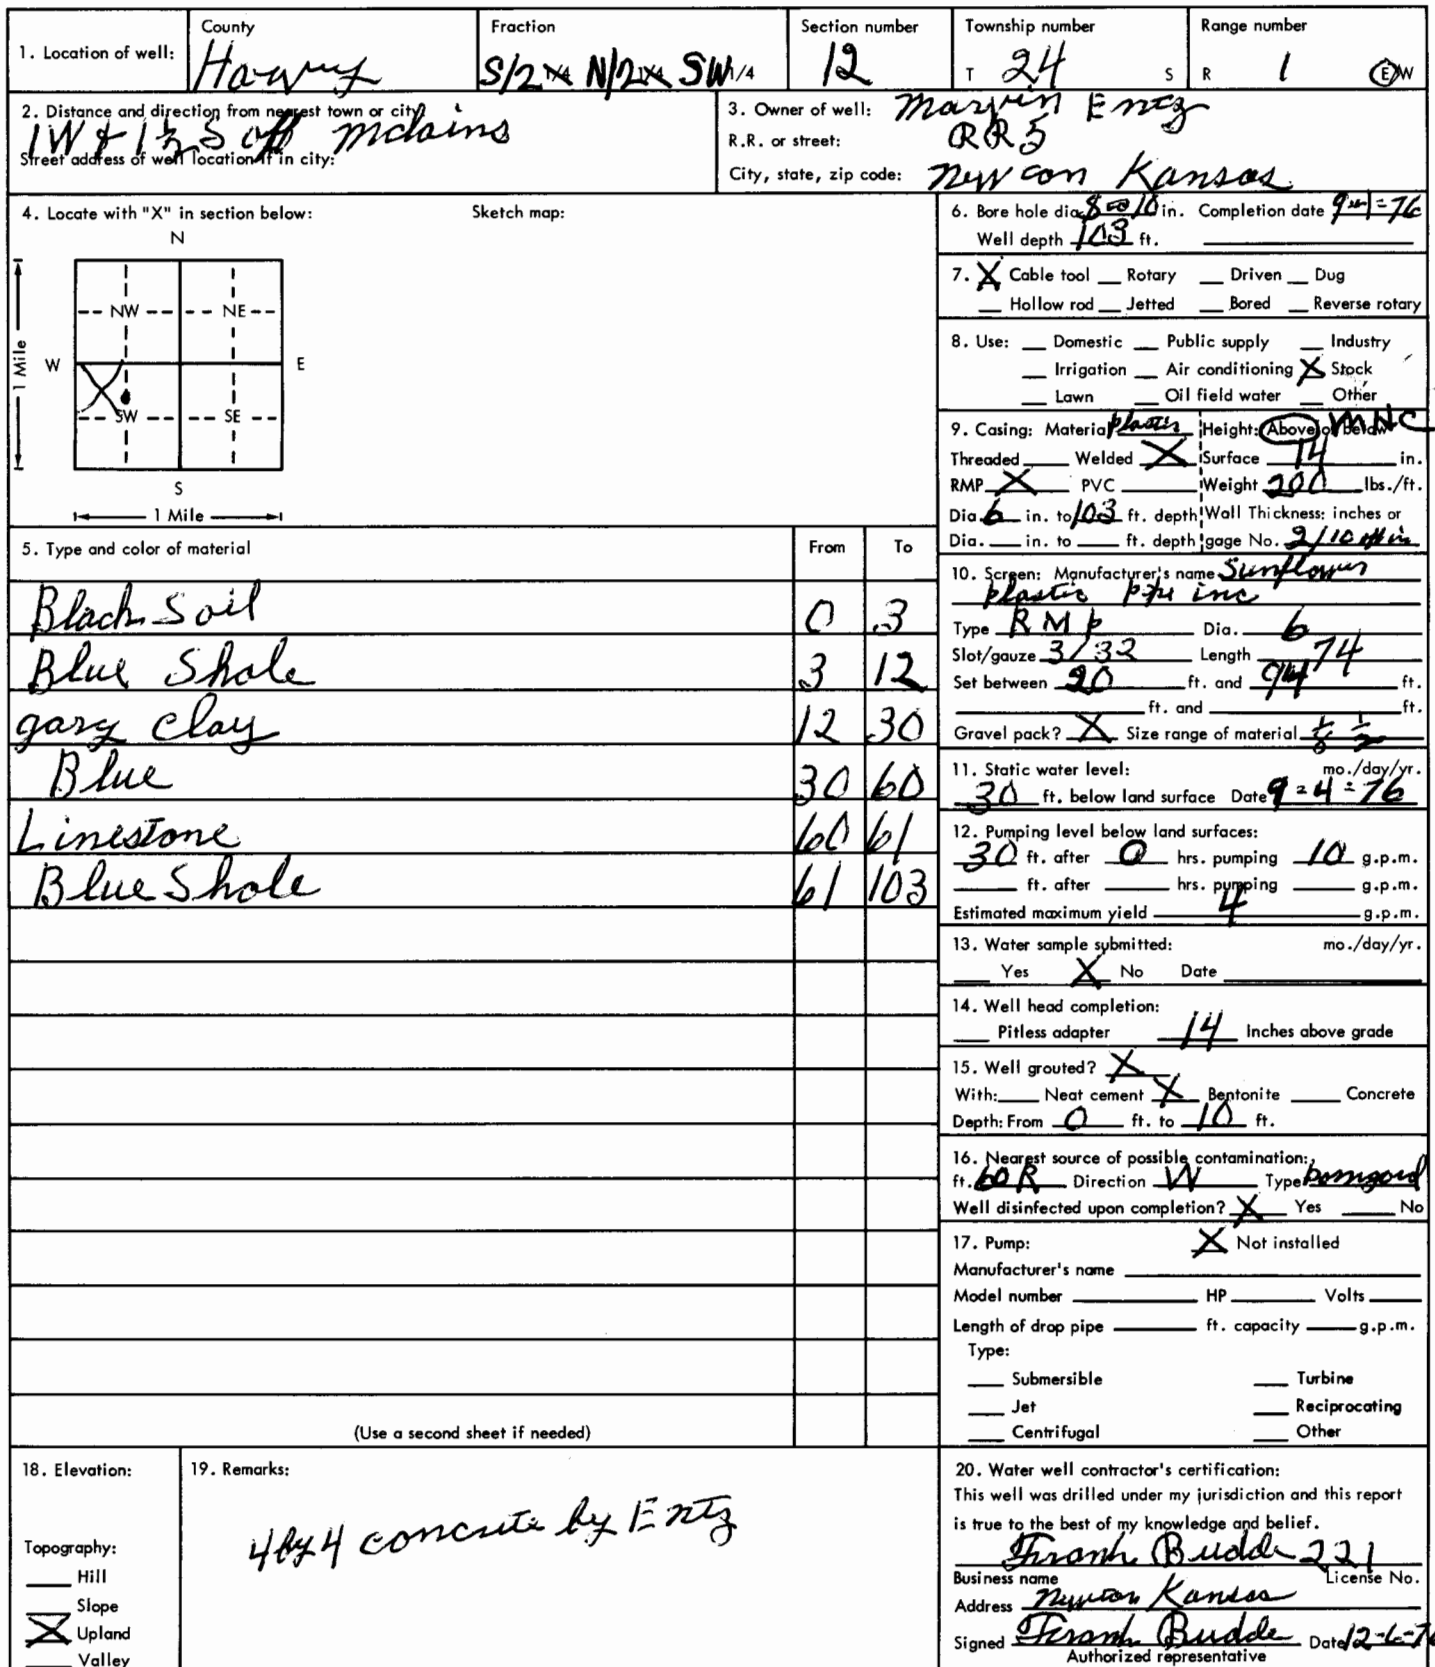 1. Location of well: County Harvey Fraction S/2 1/4 N/2 1/4 SW 1/4 Section number 12 Township number T 24 S Range number R 1 E/W
2. Distance and direction from nearest town or city?
1W & 1½ S off Mclains
Street address of well location if in city:
3. Owner of well: Marvin Entz
R.R. or street: RR5
City, state, zip code: Newton Kansas
4. Locate with "X" in section below: Sketch map:
N
NW NE
W E
1 Mile
SW SE
S
1 Mile
5. Type and color of material From To
Black Soil 0 3
Blue Shale 3 12
gary clay 12 30
Blue 30 60
Linestone 60 61
Blue Shale 61 103
(Use a second sheet if needed)
6. Bore hole dia. 8 to 10 in. Completion date 9-4-76
Well depth 103 ft.
7. X Cable tool Rotary Driven Dug
Hollow rod Jetted Bored Reverse rotary
8. Use: Domestic Public supply Industry
Irrigation Air conditioning X Stock
Lawn Oil field water Other
9. Casing: Material plastic Height: Above or below
Threaded Welded X Surface 14 in.
RMP X PVC Weight 200 lbs./ft.
Dia. 6 in. to 103 ft. depth Wall Thickness: inches or
Dia. in. to ft. depth gage No. 2/10 of in
10. Screen: Manufacturer's name Sunflower
plastic pipe inc
Type RMP Dia. 6
Slot/gauze 3/32 Length 74
Set between 20 ft. and 94 ft.
ft. and ft.
Gravel pack? X Size range of material
11. Static water level: mo./day/yr.
30 ft. below land surface Date 9=4=76
12. Pumping level below land surfaces:
30 ft. after 0 hrs. pumping 10 g.p.m.
ft. after hrs. pumping g.p.m.
Estimated maximum yield 4 g.p.m.
13. Water sample submitted: mo./day/yr.
Yes X No Date
14. Well head completion:
Pitless adapter 14 Inches above grade
15. Well grouted? X
With: Neat cement X Bentonite Concrete
Depth: From 0 ft. to 10 ft.
16. Nearest source of possible contamination:
ft. 60 R Direction W Type
Well disinfected upon completion? X Yes No
17. Pump: X Not installed
Manufacturer's name
Model number HP Volts
Length of drop pipe ft. capacity g.p.m.
Type:
Submersible Turbine
Jet Reciprocating
Centrifugal Other
18. Elevation:
Topography:
Hill
Slope
X Upland
Valley
19. Remarks:
4 by 4 concrete by Entz
20. Water well contractor's certification:
This well was drilled under my jurisdiction and this report
is true to the best of my knowledge and belief.
Frank Budde 221
Business name License No.
Address Newton Kansas
Signed Frank Budde Date 12-6-76
Authorized representative